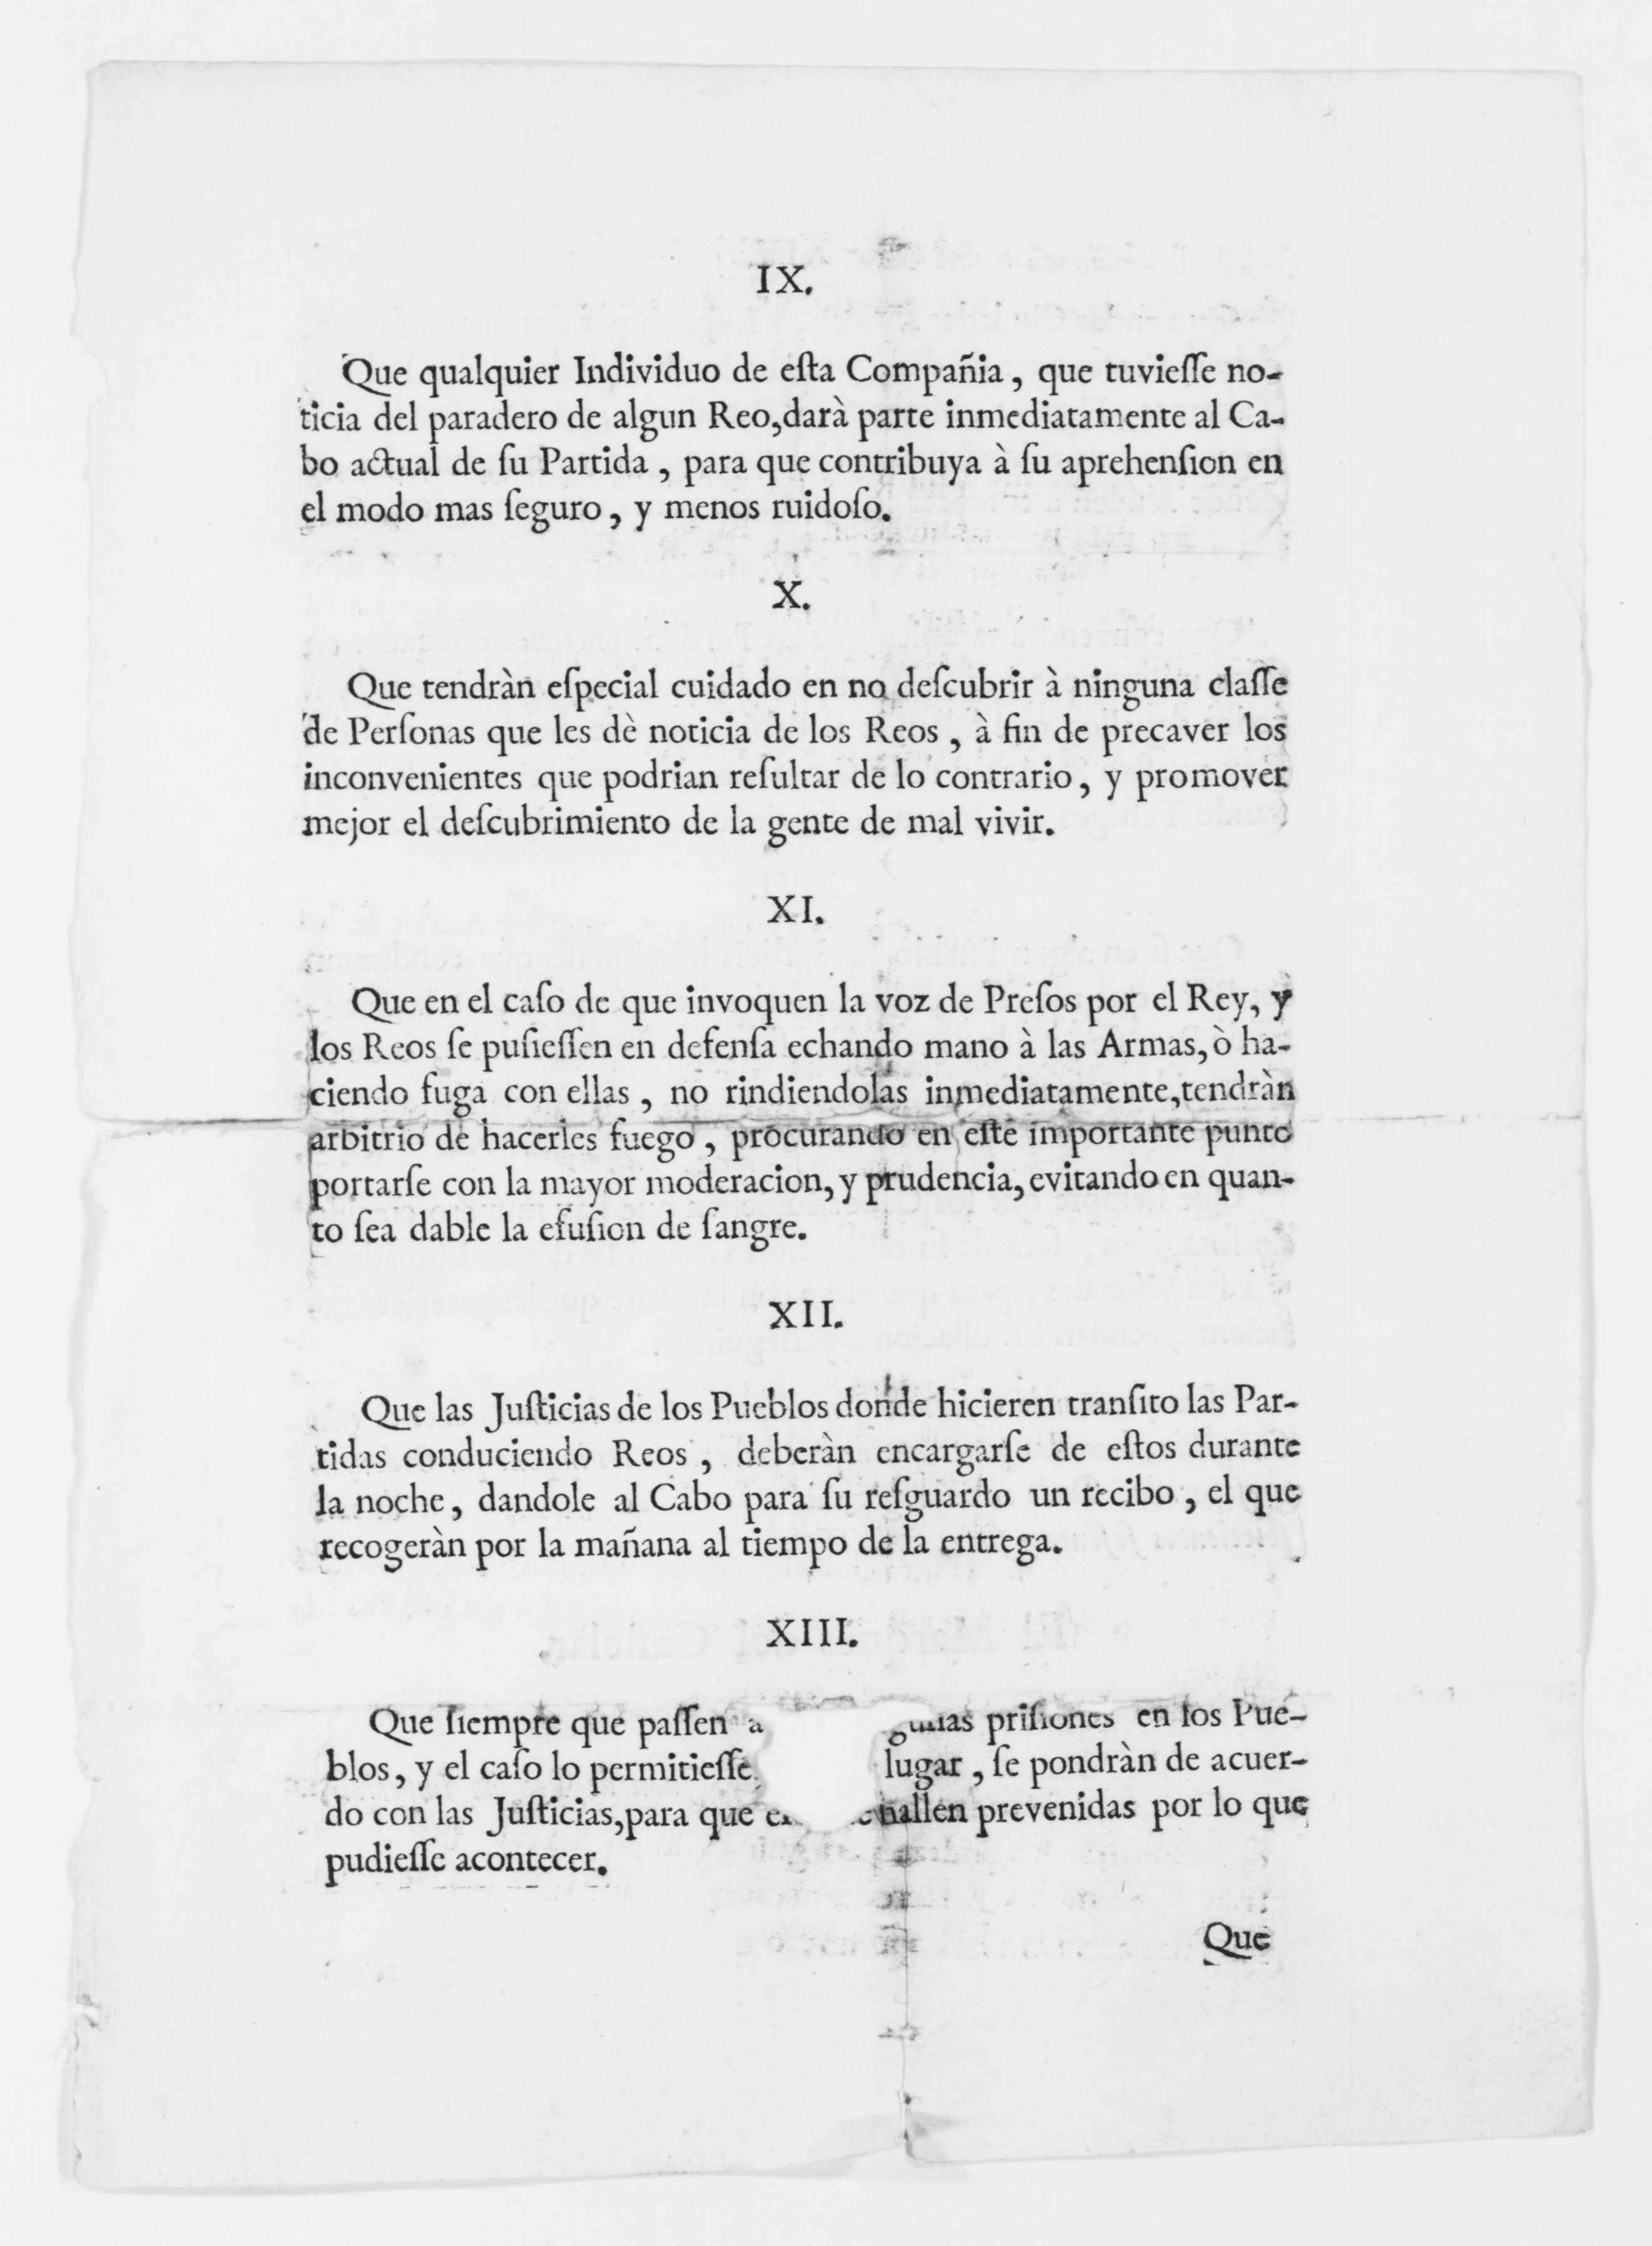 IX.
Que qualquier Individuo de eſta Compañia, que tuvieſſe no-
ticia del paradero de algun Reo, darà parte inmediatamente al Ca-
bo actual de ſu Partida, para que contribuya à ſu aprehenſion en
el modo mas ſeguro, y menos ruidoſo.
X.
Que tendràn eſpecial cuidado en no deſcubrir à ninguna claſſe
de Perſonas que les dè noticia de los Reos, à fin de precaver los
inconvenientes que podrian reſultar de lo contrario, y promover
mejor el deſcubrimiento de la gente de mal vivir.
XI.
Que en el caſo de que invoquen la voz de Preſos por el Rey, y
los Reos ſe puſieſſen en defenſa echando mano à las Armas, ò ha-
ciendo fuga con ellas, no rindiendolas inmediatamente, tendràn
arbitrio de hacerles fuego, procurando en eſte importante punto
portarſe con la mayor moderacion, y prudencia, evitando en quan-
to ſea dable la efuſion de ſangre.
XII.
Que las Juſticias de los Pueblos donde hicieren tranſito las Par-
tidas conduciendo Reos, deberàn encargarſe de eſtos durante
la noche, dandole al Cabo para ſu reſguardo un recibo, el que
recogeràn por la mañana al tiempo de la entrega.
XIII.
Que ſiempre que paſſen a priſiones en los Pue-
blos, y el caſo lo permitieſſe lugar, ſe pondràn de acuer-
do con las Juſticias, para que hallen prevenidas por lo que
pudieſſe acontecer.
Que